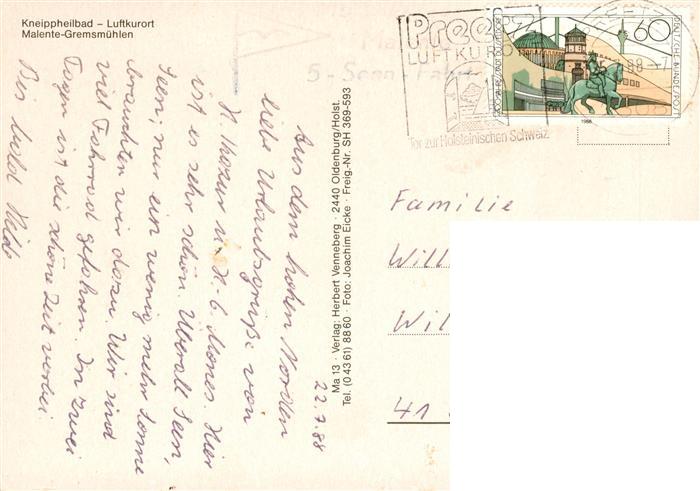 Kneippheilbad – Luftkurort
Malente-Gremsmühlen
22.7.88
Aus dem hohen Norden
liebe Urlaubsgrüße von
H. u. H.-C. Mones. Hier
ist es sehr schön. Überall Seen,
Seen, nur ein wenig mehr Sonne
brauchten wir dazu. Wir sind
viel Fahrrad gefahren. In zwei
Tagen ist die schöne Zeit vorbei.
Bis bald
Ma 13 · Verlag: Herbert Venneberg · 2440 Oldenburg/Holst.
Tel. (0 43 61) 88 60 · Foto: Joachim Eicke · Freig.-Nr. SH 369-593
Preetz
LUFTKURORT
Tor zur Holsteinischen Schweiz
60
DEUTSCHE BUNDESPOST
700 JAHRE STADT DÜSSELDORF
1988
88-7
5-Seen-Fahrt
Familie
Will
Wil
41